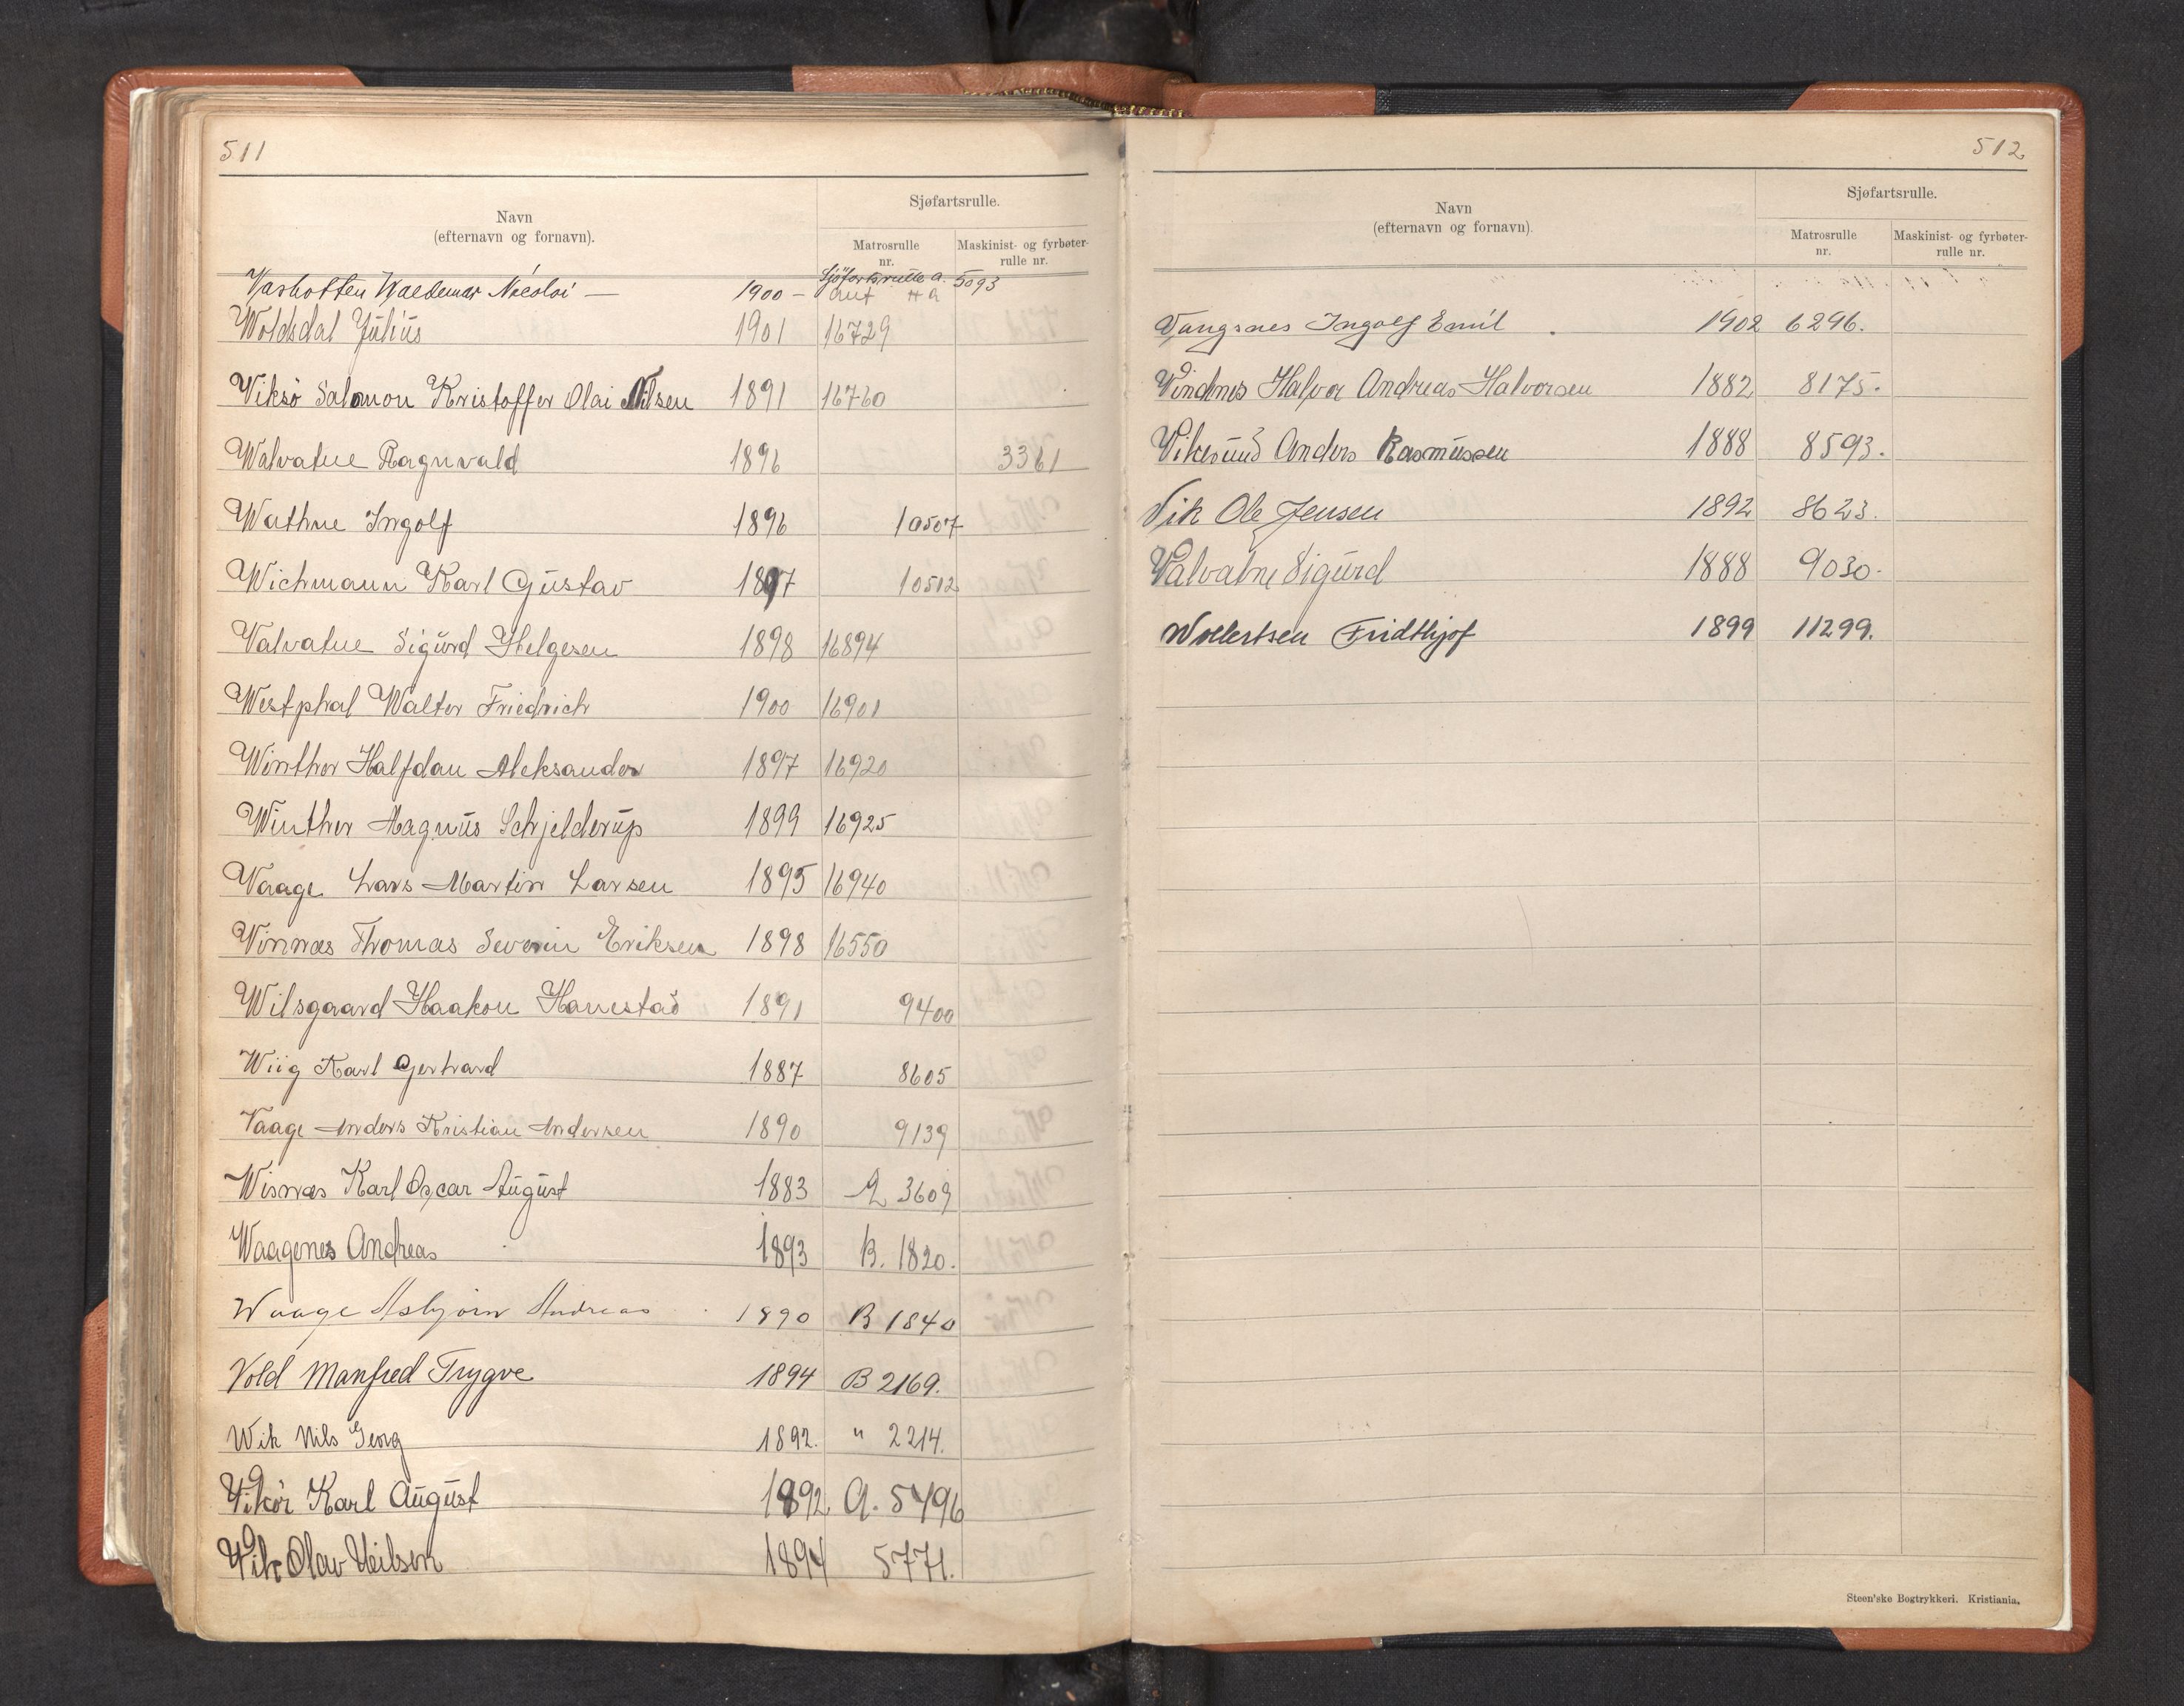 511
Navn
(efternavn og fornavn).
Sjøfartsrulle.
Matrosrulle
nr.
Maskinist- og fyrbøter-
rulle nr.
Waldemar Nicolai — 1900 — Sjöfartsrulle a. 5093
Woldsdal Julius 1901 16729
Viksö Salomon Kristoffer Olai Nilsen 1891 16760
Walvatne Ragnvald 1896 3361
Wathne Ingolf 1896 10507
Wichmann Karl Gustav 1897 10512
Valvatne Sigurd Helgesen 1898 16894
Westphal Walter Friedrich 1900 16901
Winther Halfdan Aleksander 1897 16920
Winther Magnus Schjelderup 1899 16925
Vaage Lars Martin Larsen 1895 16940
Vinnæs Thomas Severin Eriksen 1898 16550
Wilsgaard Haakon Hanestad 1891 9400
Wiig Karl Gerhard 1887 8605
Vaage Anders Kristian Andersen 1890 9139
Wisnæs Karl Oscar August 1883 A 3609
Waagenes Andreas 1893 B. 1820.
Waage Asbjørn Andreas 1890 B 1840
Vold Manfred Trygve 1894 B 2169.
Wik Nils Georg 1892. " 2214.
Vikör Karl August 1892 A. 5496
Vik Olav Neilsen 1894 5771.
512
Navn
(efternavn og fornavn).
Sjøfartsrulle.
Matrosrulle
nr.
Maskinist- og fyrbøter-
rulle nr.
Vangsnes Ingolf Emil 1902 6296.
Vindnes Halvor Andreas Halvorsen 1882 8175.
Vikesund Anders Rasmussen 1888 8593.
Vik Ole Jensen 1892 8623.
Valvatne Sigurd 1888 9030.
Wollertsen Fridthjof 1899 11299.
Steen'ske Bogtrykkeri. Kristiania.